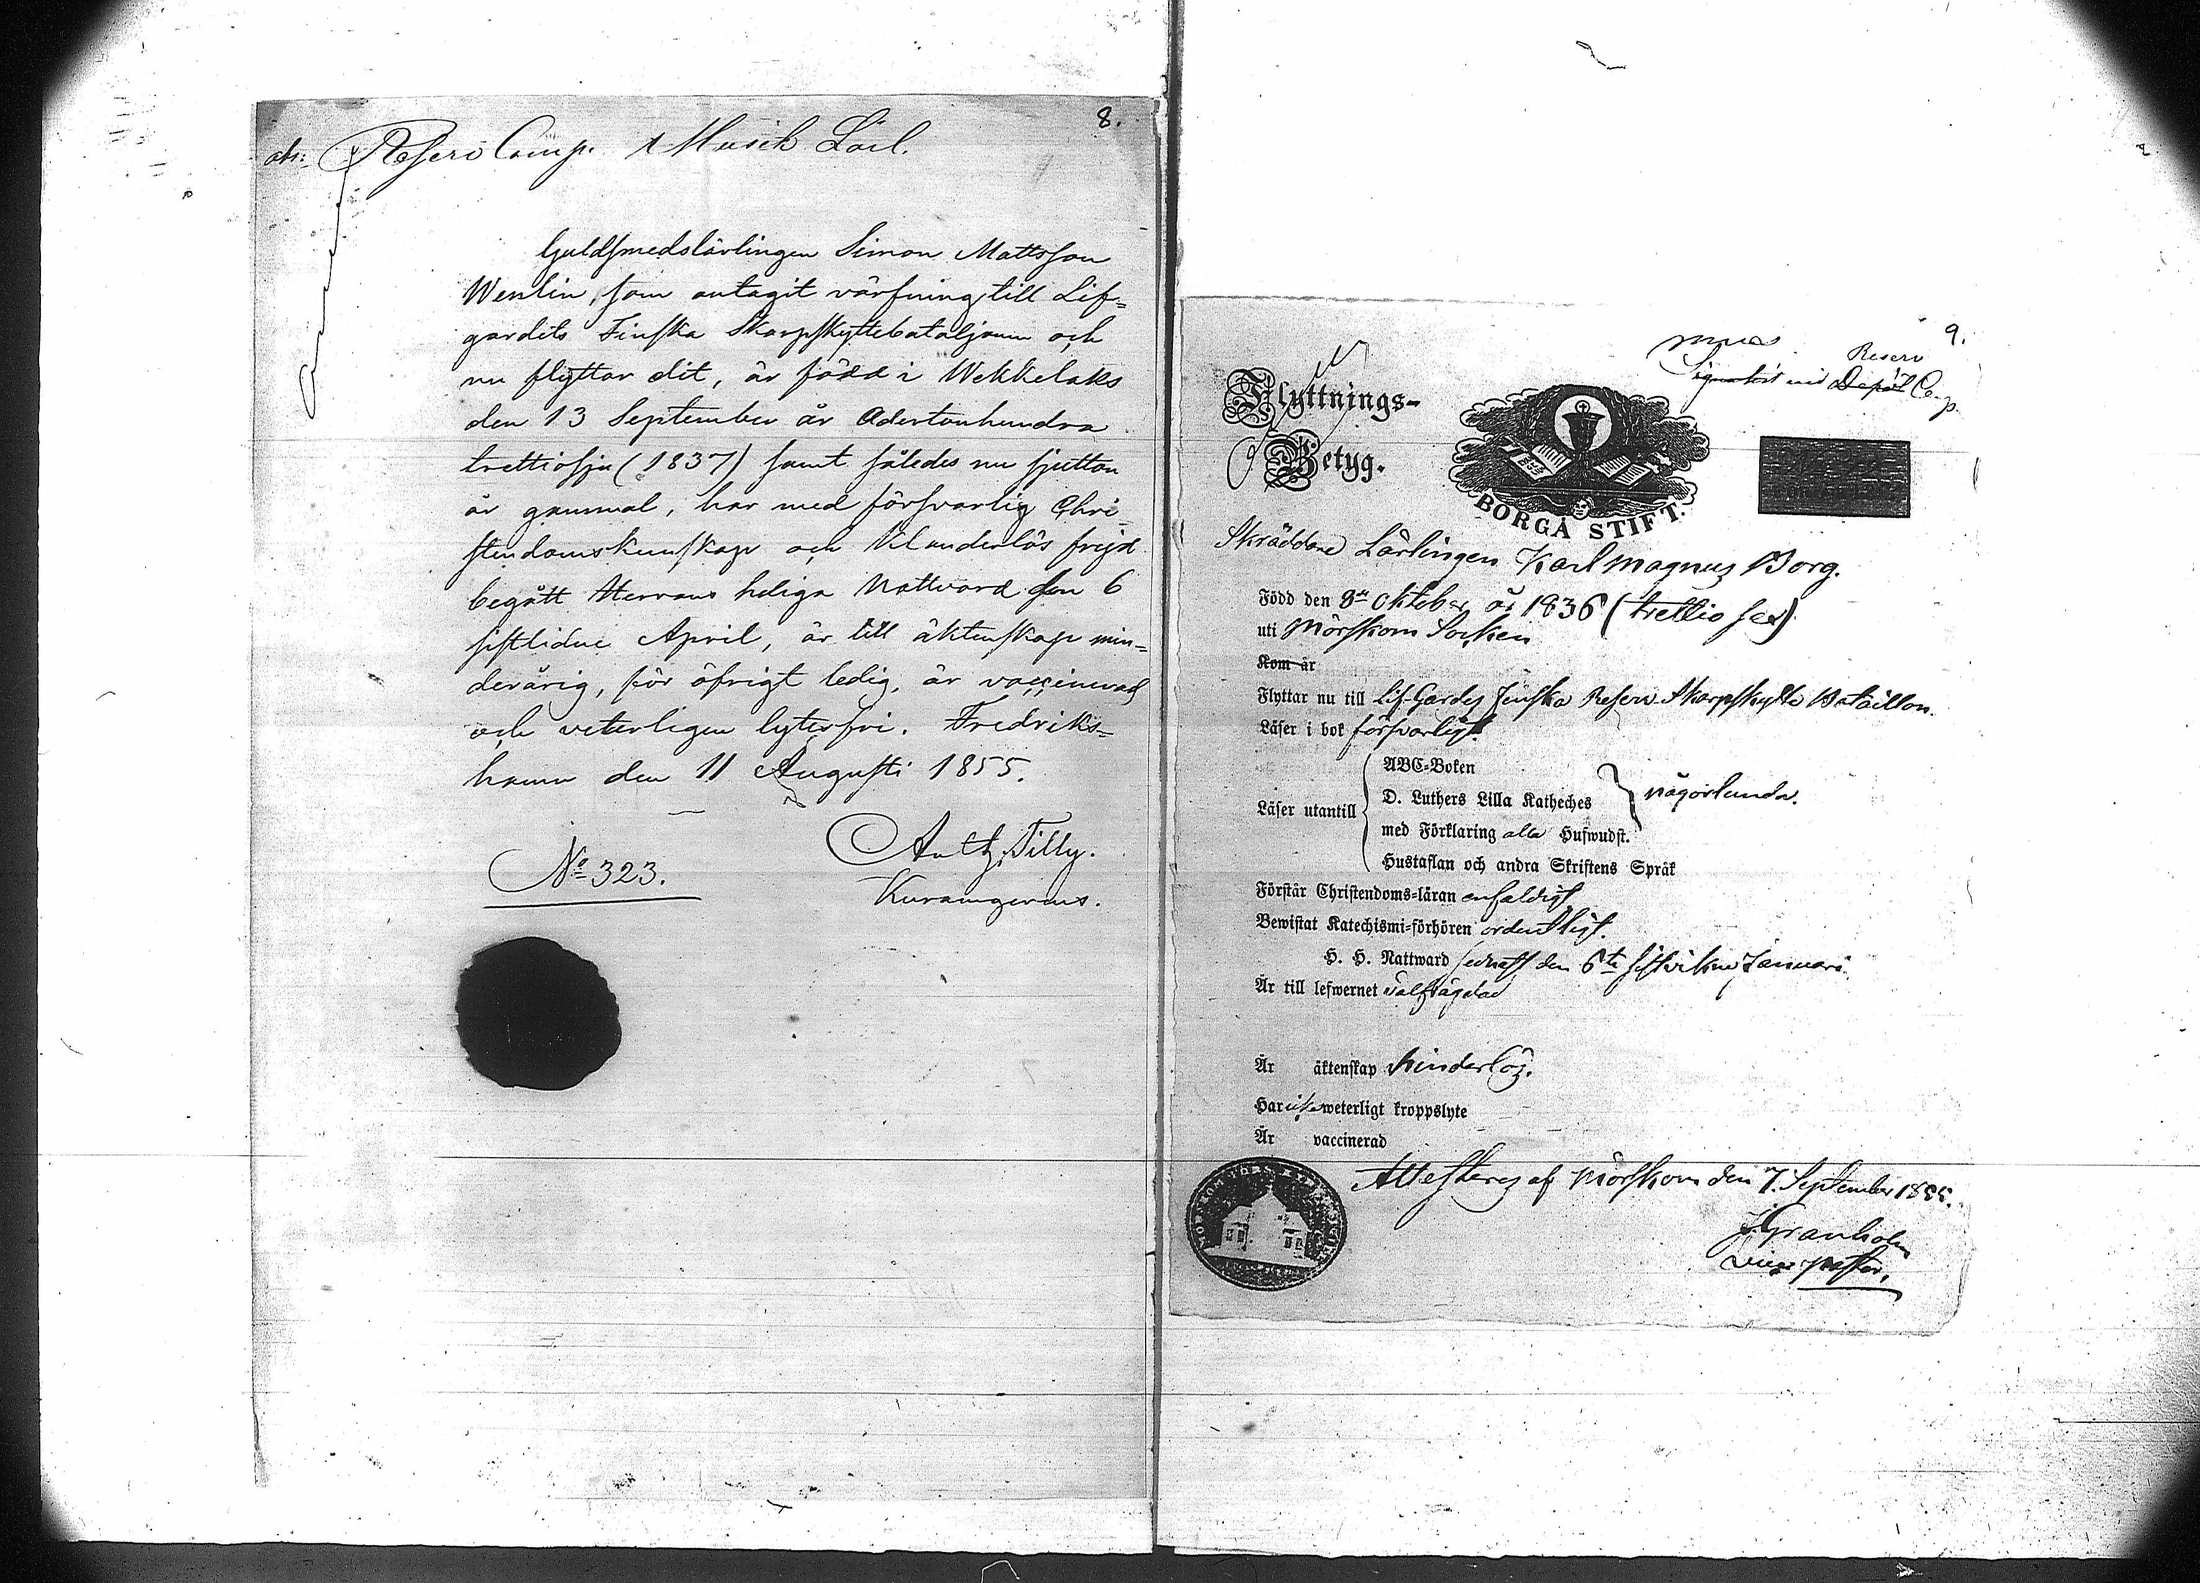 8.
Reserv Comp. Musik Lärl.
Guldsmedslärlingen Simon Mattsson
Wenlin, som antagit värfning till Lif=
gardets Finska Skarpskyttebataljonn och
nu flyttar dit, är född i Wekkelaks
den 13 September år Adertonhundra
trettiosju (1837) samt således nu sjutton
år gammal, har med försvarlig Chri-
stendomskunskap och klanderlös frejd
begått Herrans heliga Nattvard den 6
sistlidne April, är till äktenskap min=
derårig, för öfrigt ledig, är vaccinerad
och veterligen lytesfri. Fredriks=
hamn den 11 Augusti 1855.
No 323.
Tilly.
9.
Reserv
vid Depôt Comp.
Flyttnings-
Betyg.
BORGÅ STIFT.
Skräddare Lärlingen Karl Magnus Borg.
Född den 8de oktober år 1836 (trettio sex)
uti Mörskom Socken
Kom år
Flyttar nu till Lif-Gardes Finska Reserv Skarpskytte Bataillon.
Läser i bok försvarligt
Läser utantill
ABC-Boken
D. Luthers Lilla Katheches
med Förklaring alla Hufwudst.
Hustaflan och andra Skriftens Språk
någorlunda.
Förstår Christendoms-läran enfaldigt
Bewistat Katechismi-förhören ordentligt.
H. H. Nattward senast den 6te sistvikne Januari.
Är till lefwernet välfrägdad
Är äktenskap hinderlös.
Har icke weterligt kroppslyte
Är vaccinerad
Attesteras af Mörskom den 7. September 1855.
J. Granholm
vice pastor.